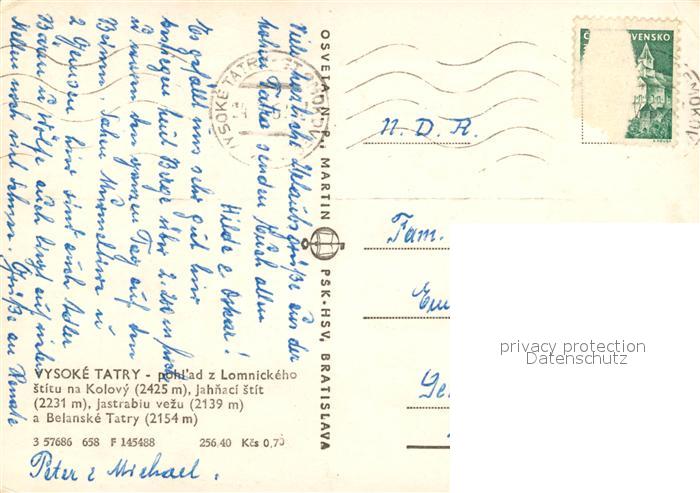 Viele herzliche Urlaubsgrüße aus der
hohen Tatra senden Euch allen
Hilde & Oskar!
Es gefällt uns sehr gut hier
sind Berge über 2.200 m hoch
u. waren den ganzen Tag auf den
Beinen. Sahen Murmeltiere u.
2 Gemsen hier sind auch Adler
Bären u. Wölfe auch liegt auf vielen
noch Schnee. Grüße an Renate
Peter & Michael.
VYSOKÉ TATRY - pohľad z Lomnického
štítu na Kolový (2425 m), Jahňací štít
(2231 m), Jastrabiu vežu (2139 m)
a Belanské Tatry (2154 m)
3 57686 658 F 145488 256,40 Kčs 0,70
OSVETA, N. P., MARTIN PSK-HSV, BRATISLAVA
VYSOKÉ TATRY
VENSKO
N. D. R.
Fam.
privacy protection
Datenschutz